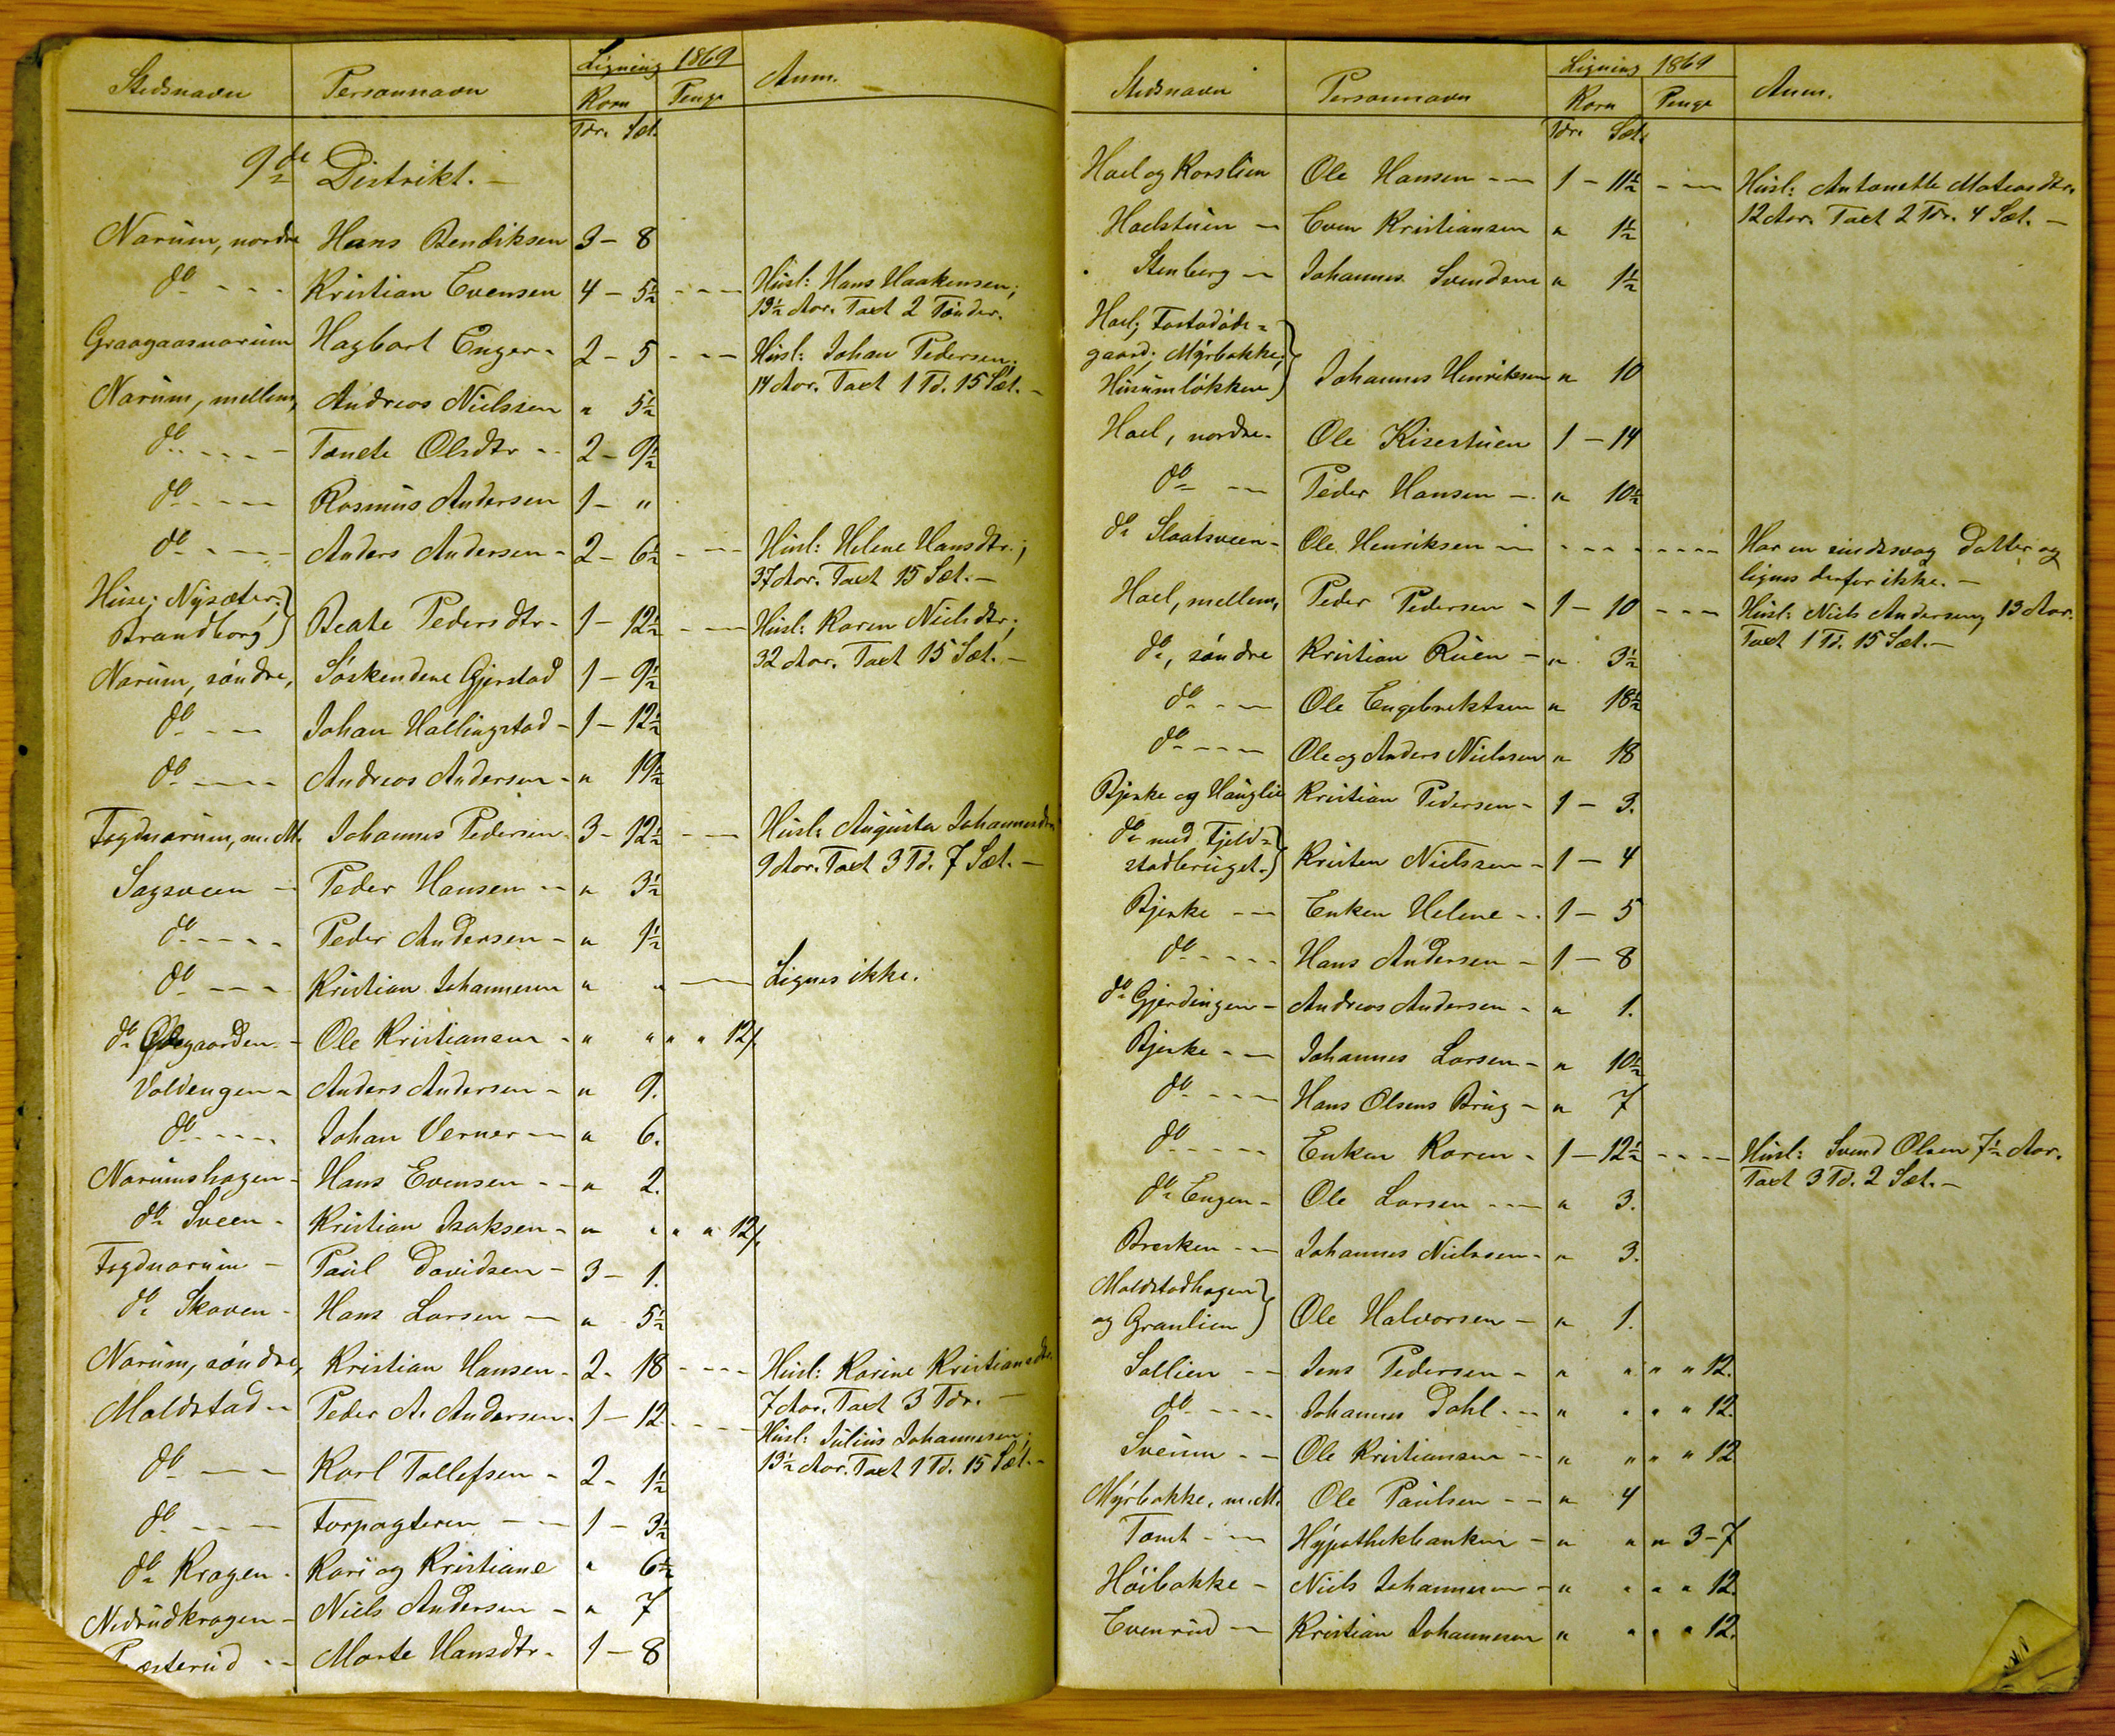 Stedsnavn Personnavn Ligning 1869 Anm.
Korn Penge
Tdr. Sæt.
9de Distrikt. —
Narum, nordre Hans Bendiksen 3 - 8
do - - - Kristian Evensen 4 - 5½ - - - Husl: Hans Haakensen;
13½ Aar. Taxt 2 Tønder.
Graagaasnarum Hagbart Enger - 2 - 5 - - - Husl: Johan Pedersen;
14 Aar. Taxt 1 Td. 15 Sæt. -
Narum, mellem, Andreas Nielssen " 5½
do - - - - Olsdtr - - 2 - 9½
do - - - - Rasmus Andersen 1 - "
do - - - - Anders Andersen - 2 - 6½ - - - Husl: Helene Hansdtr.;
37 Aar. Taxt 15 Sæt. -
Huse; Nysæter;
Brandborg) Beate Pedersdtr - 1 - 12½ - - - Husl: Karen Nielsdtr;
32 Aar. Taxt 15 Sæt. -
Narum, søndre, Søskendene Gjerstad 1 - 9½
do - - - Johan Hallingstad - 1 - 12½
do - - - - Andreas Andersen - " 19½
Fogdnarum, m.M. Johannes Pedersen - 3 - 12½ - - - Husl: Augusta Johannesdtr
9 Aar. Taxt 3 Td. 7 Sæt. -
Sagsveen - Peder Hansen - - " 3½
do - - - - Peder Andersen - " 1½
do - - - Kristian Johannesen " " - - Lignes ikke.
do Ødegaarden - Ole Kristiansen - " " " " 12/.
Voldengen - Anders Andersen - " 9.
do - - - - Johan Verner - - " 6.
Narumshagen - Hans Evensen - - " 2.
do Sveen - Kristian Isaksen - " " " " 12/.
Fogdnarum - Paul Davidsen - 3 - 1.
do Skaven - Hans Larsen - " 5½
Narum, søndre, Kristian Hansen - 2 - 18 - - - Husl: Karine Kristiansdtr.
7 Aar. Taxt 3 Tdr. -
Maldstad - - Peder A. Andersen - 1 - 12 - - - Husl: Julius Johannesen;
13½ Aar. Taxt 1 Td. 15 Sæt. -
do - - - Karl Tollefsen - 2 - 1½
do - - - Forpagteren - - 1 - 3½
do Kragen - Kari og Kristiane " 6½
Nedrudkragen - Niels Andersen - " 7
Præsterud - - Marte Hansdtr - 1 - 8
Stedsnavn Personnavn Ligning 1869 Anm.
Korn Penge
Tdr. Sæt.
Hael og Korslien Ole Hansen - - - 1 - 11½ - - - Husl: Antonette Mateasdtr.
12 Aar. Taxt 2 Tdr. 4 Sæt. -
Haelstuen - Even Kristiansen " 1½
Stenberg - Johannes Svendsen " 1½
Hael; Fastadøde=
gaard; Myrbakke;
Husumløkken) Johannes Henriksen " 10
Hael, nordre - Ole Kisestuen 1 - 14
do - - Peder Hansen - " 10½
do Slaatsveen - Ole Henriksen - - - - - - - - - Har en sindssvag Datter og
lignes derfor ikke. -
Hael, mellem, Peder Pedersen - 1 - 10 - - - Husl: Niels Andersen, 13 Aar.
Taxt 1 Td. 15 Sæt. -
do, søndre Kristian Ruen - " 3½
do - - - Ole Engebrektsen " 18½
do - - - - Ole og Anders Nielssen " 18
Bjerke og Hauglie Kristian Pedersen - 1 - 3.
do med Fjeld=
stadbruget.) Kristen Nielssen - 1 - 4
Bjerke - - Enken Helene - - 1 - 5
do - - - - Hans Andersen - 1 - 8
do Gjerdingen - Andreas Andersen - " 1.
Bjerke - - Johannes Larsen - " 10½
do - - - - Hans Olsens Brug - " 7
do - - - - Enken Karen - 1 - 12½ - - - - Husl: Svend Olsen 7½ Aar.
Taxt 3 Td. 2 Sæt. -
do Engen - Ole Larsen - - - " 3.
Bræken - - Johannes Nielssen - " 3.
Maldstadhagen
og Granlien) Ole Halvorsen - " 1.
Sollien - - Jens Pedersen - " " " " 12.
do - - - - Johannes Dahl - - - " " " " 12.
Sveum - - Ole Kristiansen - - " " " " 12
Myrbakke, m.M. Ole Paulsen - - " 4
Tomt - - - Hypothekbanken - " " " 3 - 7
Høibakke - Niels Johannesen - " " " " 12
Evenrud - - Kristian Johannesen " " " " 12.